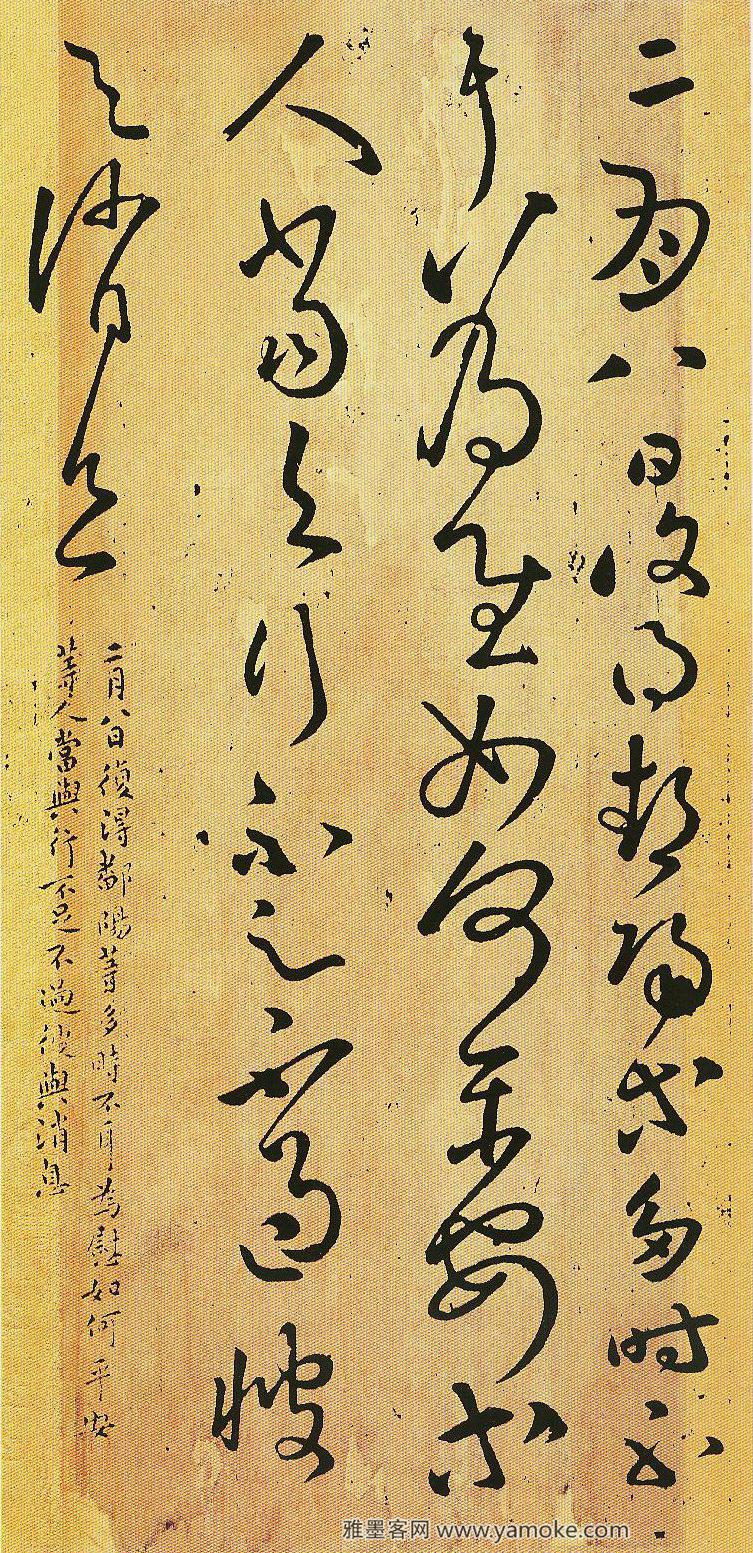 二月八日復得鄱陽等多時不
耳為慰如何平安等
人當與行不足不過彼
與消息
二月八日復得鄱陽等多時不耳為慰如何平安
等人當與行不足不過彼與消息
雅墨客网 www.yamoke.com